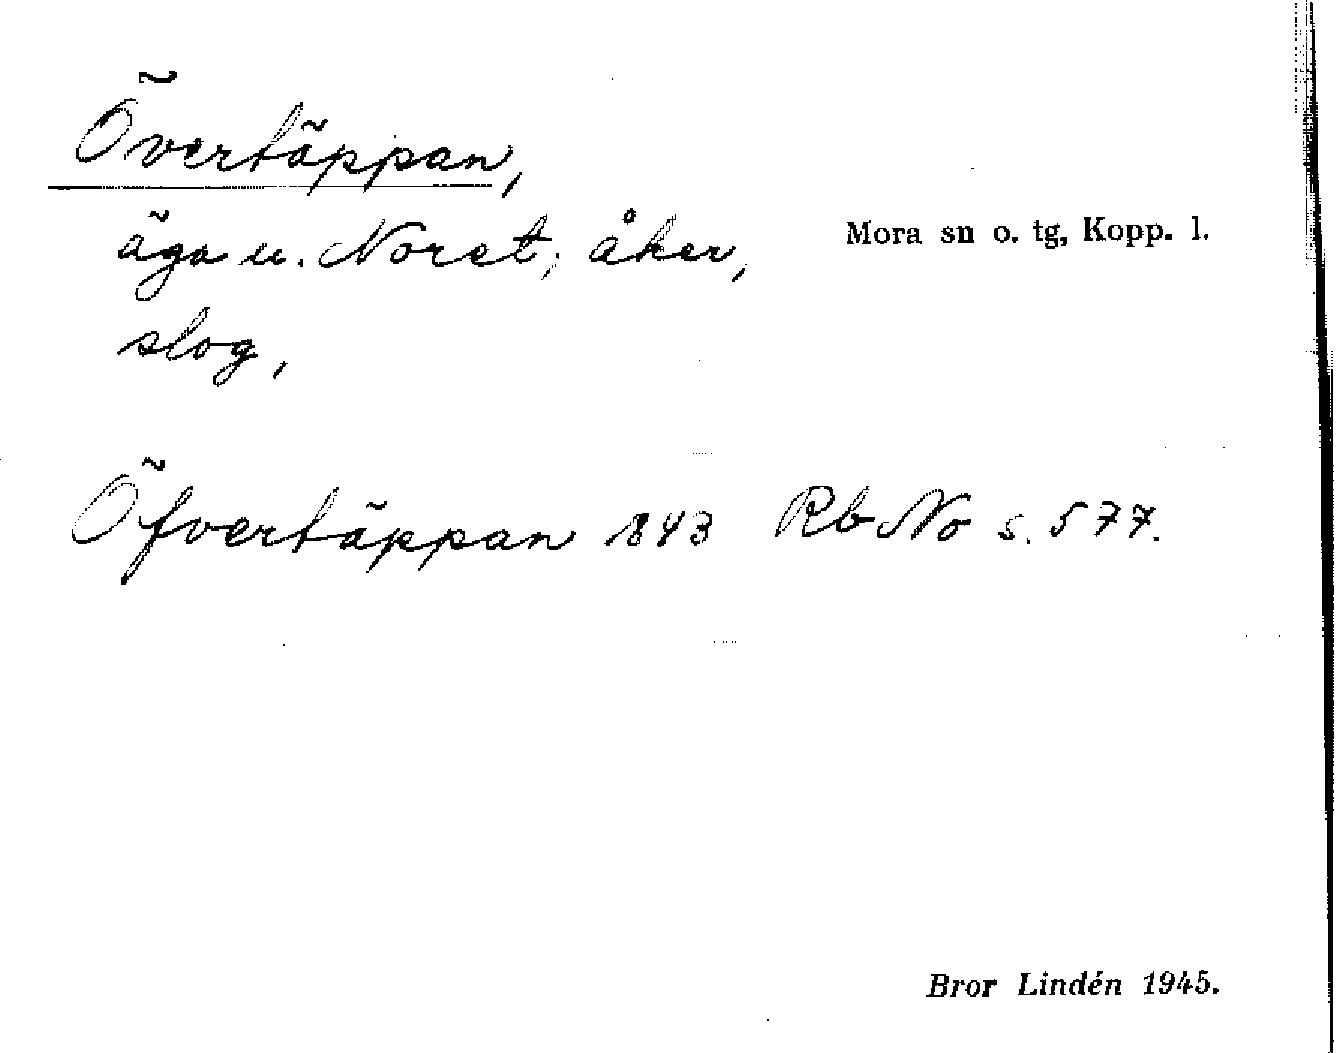 Övertäppan,
äga u. Noret; åker,
Mora sn o. tg, Kopp. l.
slog,
Öfvertäppan 1843 Rb No s. 577.
Bror Lindén 1945.